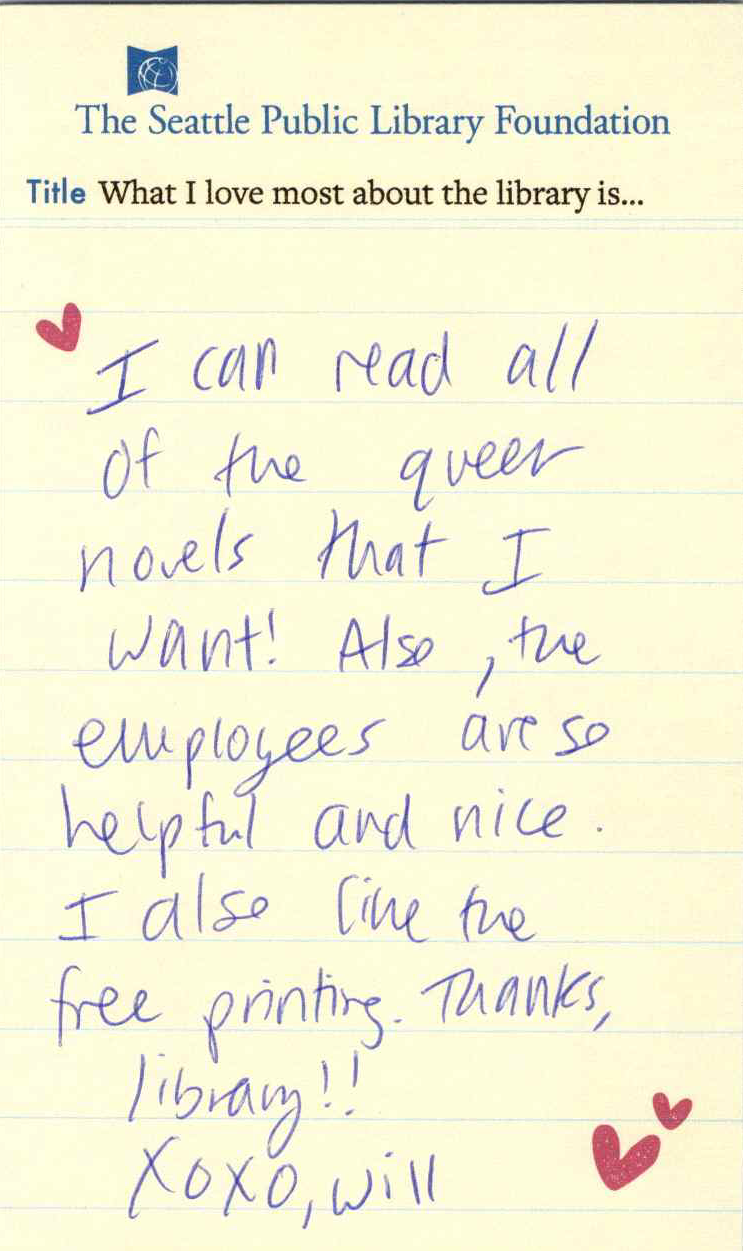 The Seattle Public Library Foundation
Title What I love most about the library is...
I can read all
of the queer
novels that I
want! Also, the
employees are so
helpful and nice.
I also like the
free printing. Thanks,
library!!
XOXO, Will